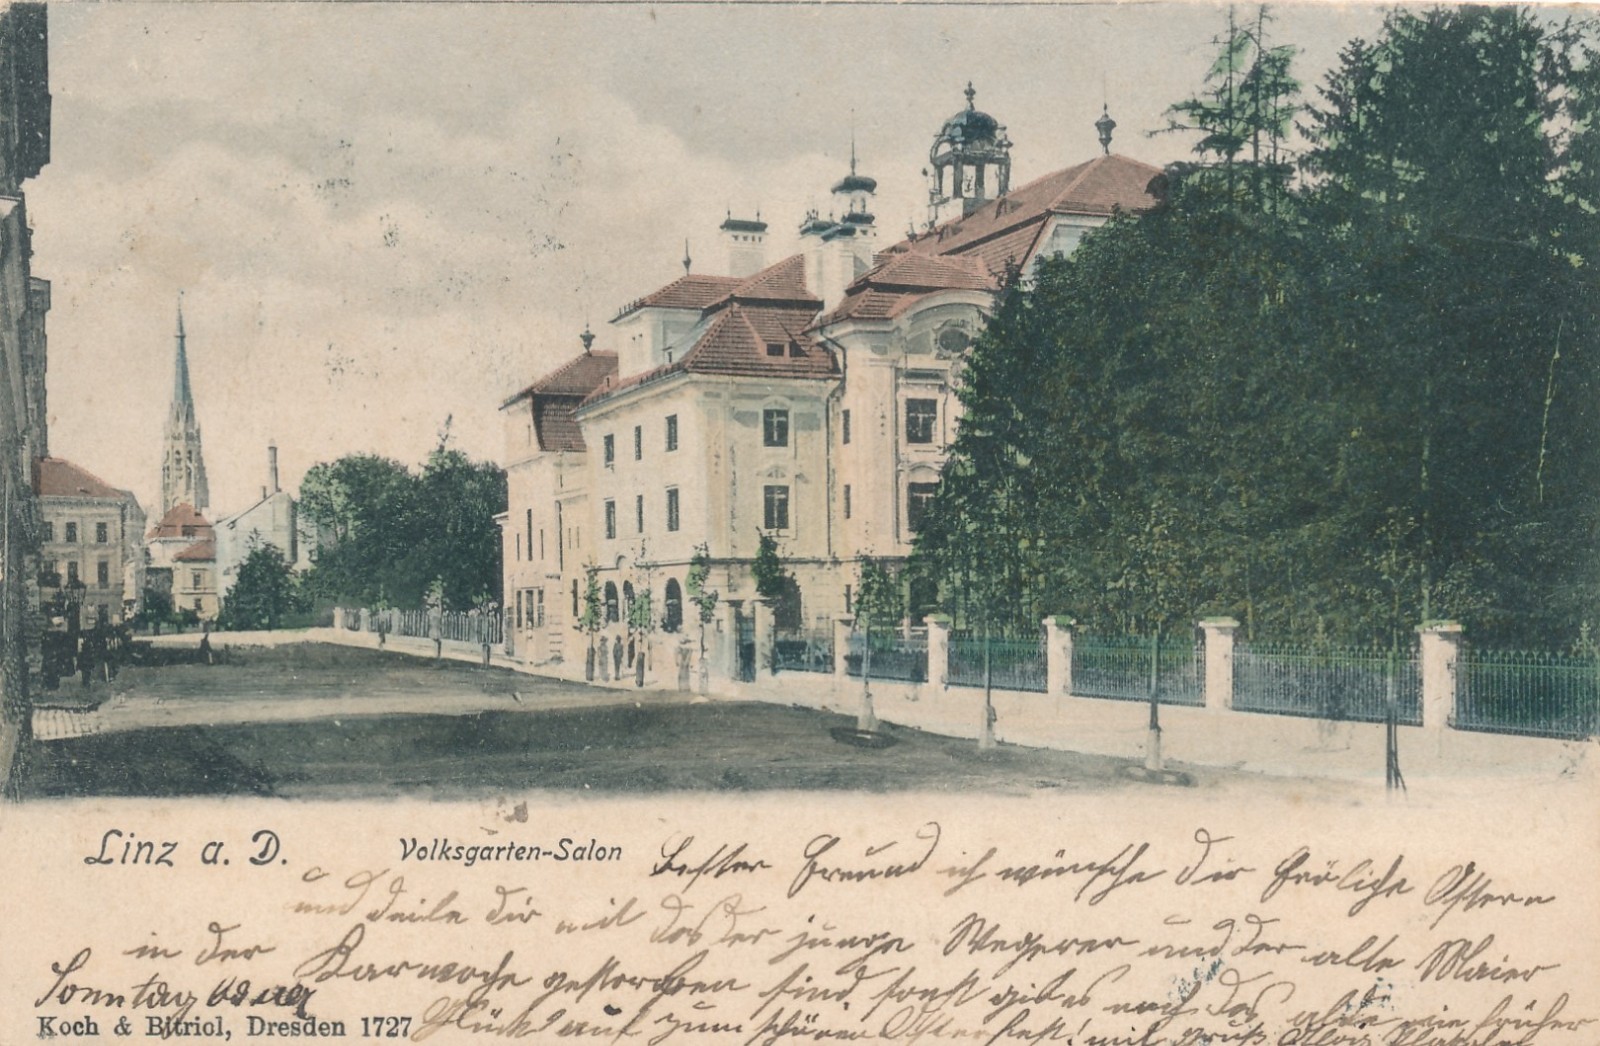 Linz a. D.
Volksgarten-Salon
Bester Freund ich wünsche Dir fröliche Ostern
und deile dir mit das der junge Wegerer und der alte Maier
in der Karwoche gestorben sind sonst gibt es noch das alte wie früher
Sonntag
Glück auf zum schönen Osterfest! mit Gruß Alois
Koch & Bitriol, Dresden 1727